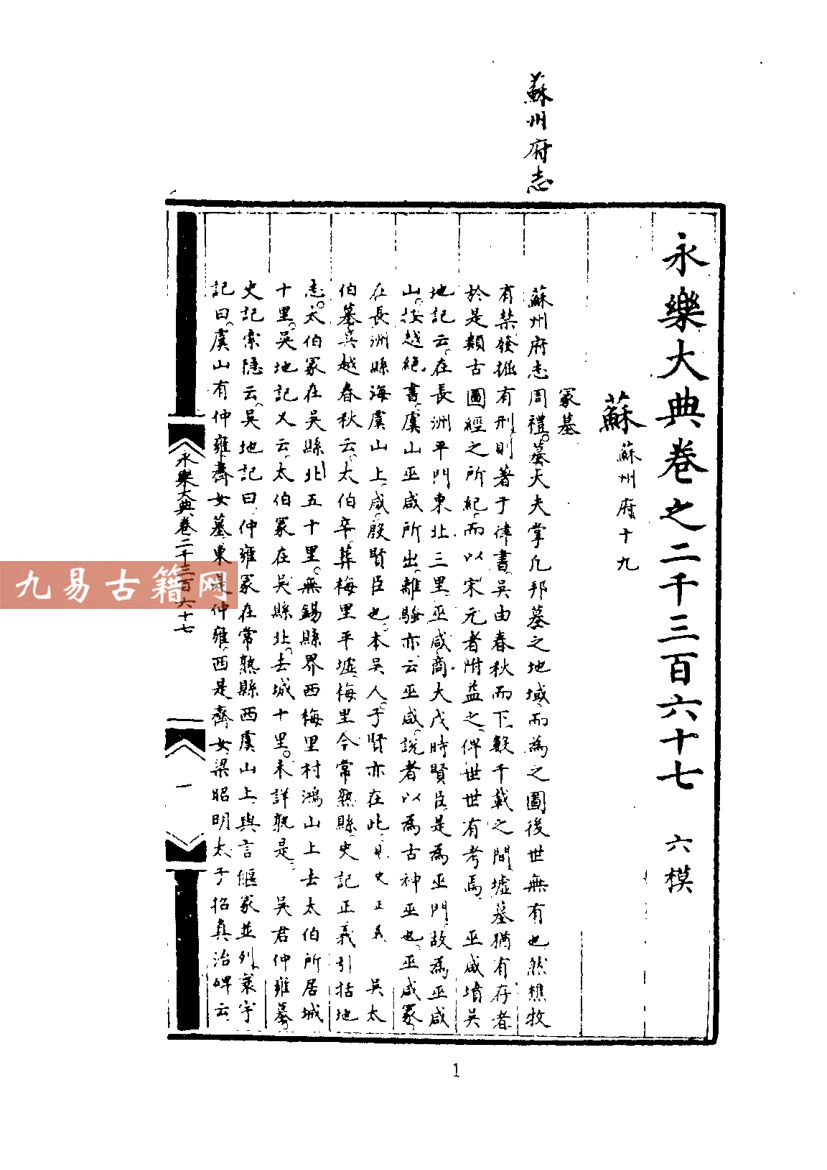 蘇州府志
永樂大典卷之二千三百六十七 六模
蘇 蘇州府十九
冢墓
蘇州府志周禮墓大夫掌凡邦墓之地域而為之圖後世無有也然樵牧
有禁發掘有刑則著于律書吳由春秋而下數千載之間墟墓猶有存者
於是類古圖經之所紀而以宋元者附益之俾世世有考焉 巫咸墳吳
地記云在長洲平門東北三里巫咸商大戊時賢臣是為巫門故為巫咸
山按越絕書虞山巫咸所出離騷亦云巫咸說者以為古神巫也巫咸冢
在長洲縣海虞山上咸殷賢臣也本吳人子賢亦在此見史正義 吳太
伯墓吳越春秋云太伯卒葬梅里平墟梅里今常熟縣史記正義引括地
志太伯冢在吳縣北五十里無錫縣界西梅里村鴻山上去太伯所居城
十里吳地記又云太伯冢在吳縣北去城十里未詳孰是 吳君仲雍墓
史記索隱云吳地記曰仲雍冢在常熟縣西虞山上與言偃冢並列寰宇
記曰虞山有仲雍齊女墓東是仲雍西是齊女梁昭明太子招真治碑云
永樂大典卷二千三百六十七
一
九易古籍网
1